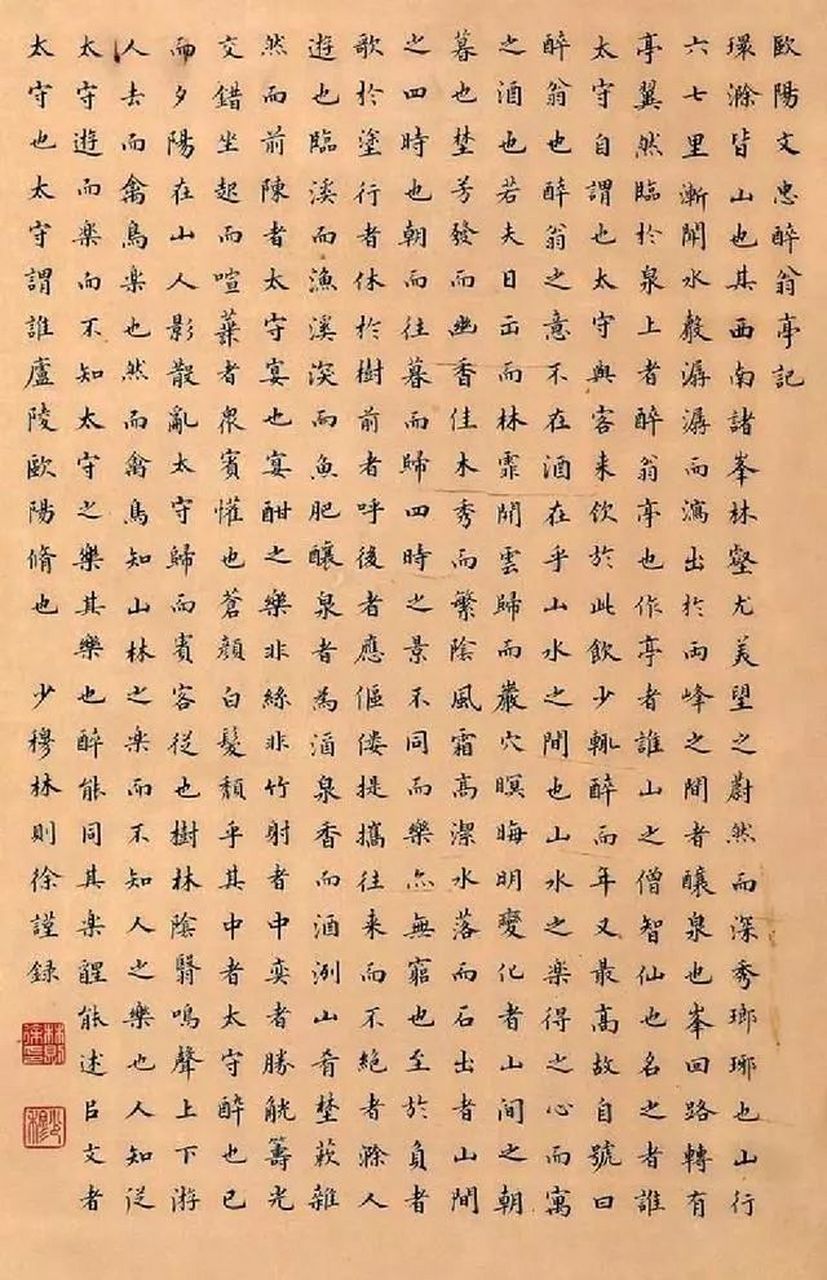 歐陽文忠醉翁亭記
環滁皆山也其西南諸峯林壑尤美望之蔚然而深秀瑯琊也山行
六七里漸聞水聲潺潺而瀉出於兩峰之間者釀泉也峯回路轉有
亭翼然臨於泉上者醉翁亭也作亭者誰山之僧智仙也名之者誰
太守自謂也太守與客来飲於此飲少輒醉而年又最高故自號曰
醉翁也醉翁之意不在酒在乎山水之間也山水之楽得之心而寓
之酒也若夫日出而林霏開雲歸而巖穴暝晦明變化者山間之朝
暮也埜芳發而幽香佳木秀而繁陰風霜高潔水落而石出者山間
之四時也朝而往暮而歸四時之景不同而樂亦無窮也至於負者
歌於塗行者休於樹前者呼後者應傴僂提攜往来而不絶者滁人
遊也臨溪而漁溪深而魚肥釀泉者為酒泉香而酒洌山肴埜蔌雜
然而前陳者太守宴也宴酣之樂非絲非竹射者中奕者勝觥籌光
交錯坐起而喧譁者衆賓懽也蒼顔白髮頹乎其中者太守醉也已
而夕陽在山人影散亂太守歸而賓客従也樹林陰翳鳴聲上下游
人去而禽鳥楽也然而禽鳥知山林之楽而不知人之樂也人知従
太守遊而楽而不知太守之樂其樂也醉能同其楽醒能述㠯文者
太守也太守謂誰廬陵歐陽脩也 少穆林則徐謹録
林則徐印
少穆